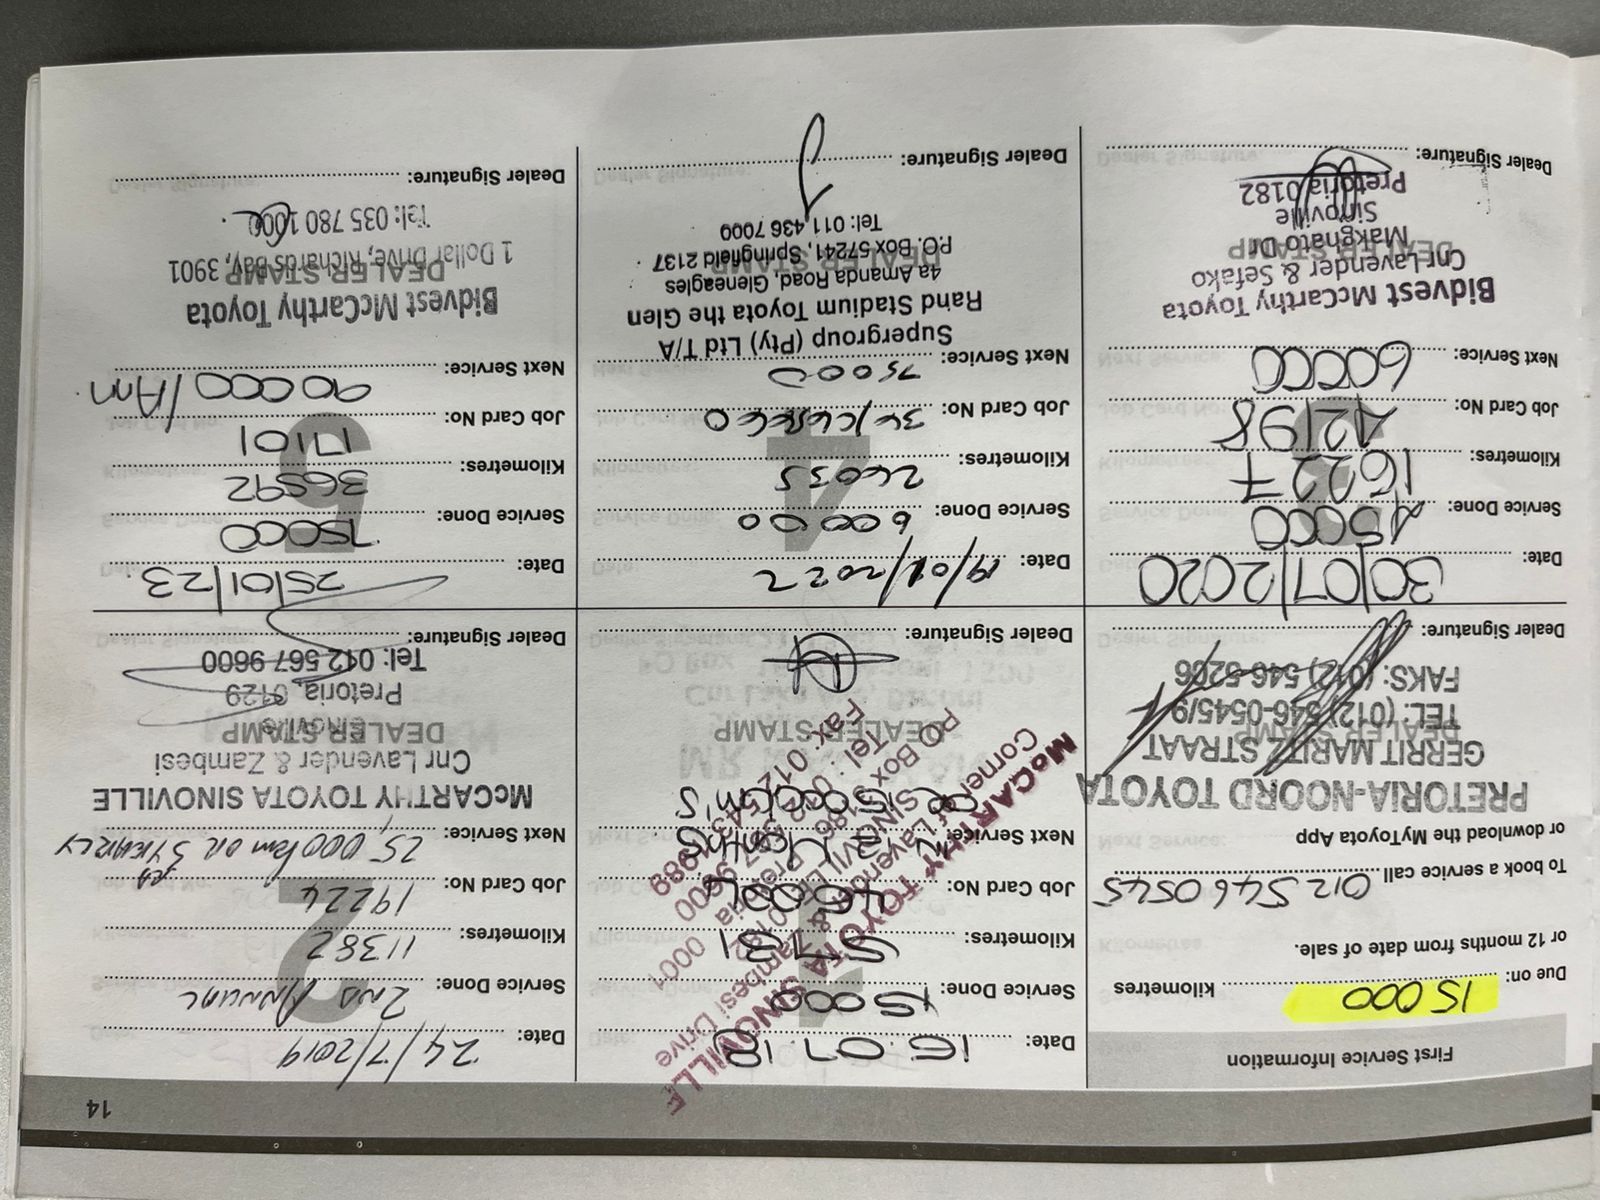 14
First Service Information
Due on: 15 000 kilometres
or 12 months from date of sale.
To book a service call 012 546 0545
or download the MyToyota App
PRETORIA-NOORD TOYOTA
GERRIT MARITZ STRAAT
DEALER STAMP
TEL: (012) 546-0545/9
FAKS: (012) 546-5206
Dealer Signature:
1
Date: 16.07.18
Service Done: 15000
Kilometres: 5731
Job Card No:
Next Service: IN 12 Months
OR 15000KM'S
McCARTHY TOYOTA SINOVILLE
Corner of Lavender & Zambesi Drive
SINOVILLE 0182
PO Box Pretoria 0001
Tel: 012 567 9600
Fax: 012 543 1989
DEALER STAMP
Dealer Signature:
2
Date: 24/7/2019
Service Done: 2ND ANNUAL
Kilometres: 11382
Job Card No: 19224
Next Service: 25,000km OR 3 YEARLY
McCARTHY TOYOTA SINOVILLE
Cnr Lavender & Zambesi
DEALER STAMP
Pretoria 0129
Tel: 012 567 9600
Dealer Signature:
3
Date: 30/07/2020
Service Done: 45000
Kilometres: 16227
Job Card No: 42198
Next Service: 60000
Bidvest McCarthy Toyota
Cnr Lavender & Sefako
DEALER STAMP
Makghato Dr
Sinoville
Pretoria 0182
Dealer Signature:
4
Date: 19/01/2022
Service Done: 60000
Kilometres: 26035
Job Card No:
Next Service: 75000
Supergroup (Pty) Ltd T/A
Rand Stadium Toyota the Glen
4a Amanda Road, Gleneagles
DEALER STAMP
P.O. Box 57241, Springfield 2137
Tel: 011 436 7000
Dealer Signature:
5
Date: 25/01/23
Service Done: 75000
Kilometres: 36592
Job Card No: 17101
Next Service: 90000/Ann
Bidvest McCarthy Toyota
DEALER STAMP
1 Dollar Drive, Richards Bay, 3901
Tel: 035 780 1000
Dealer Signature: